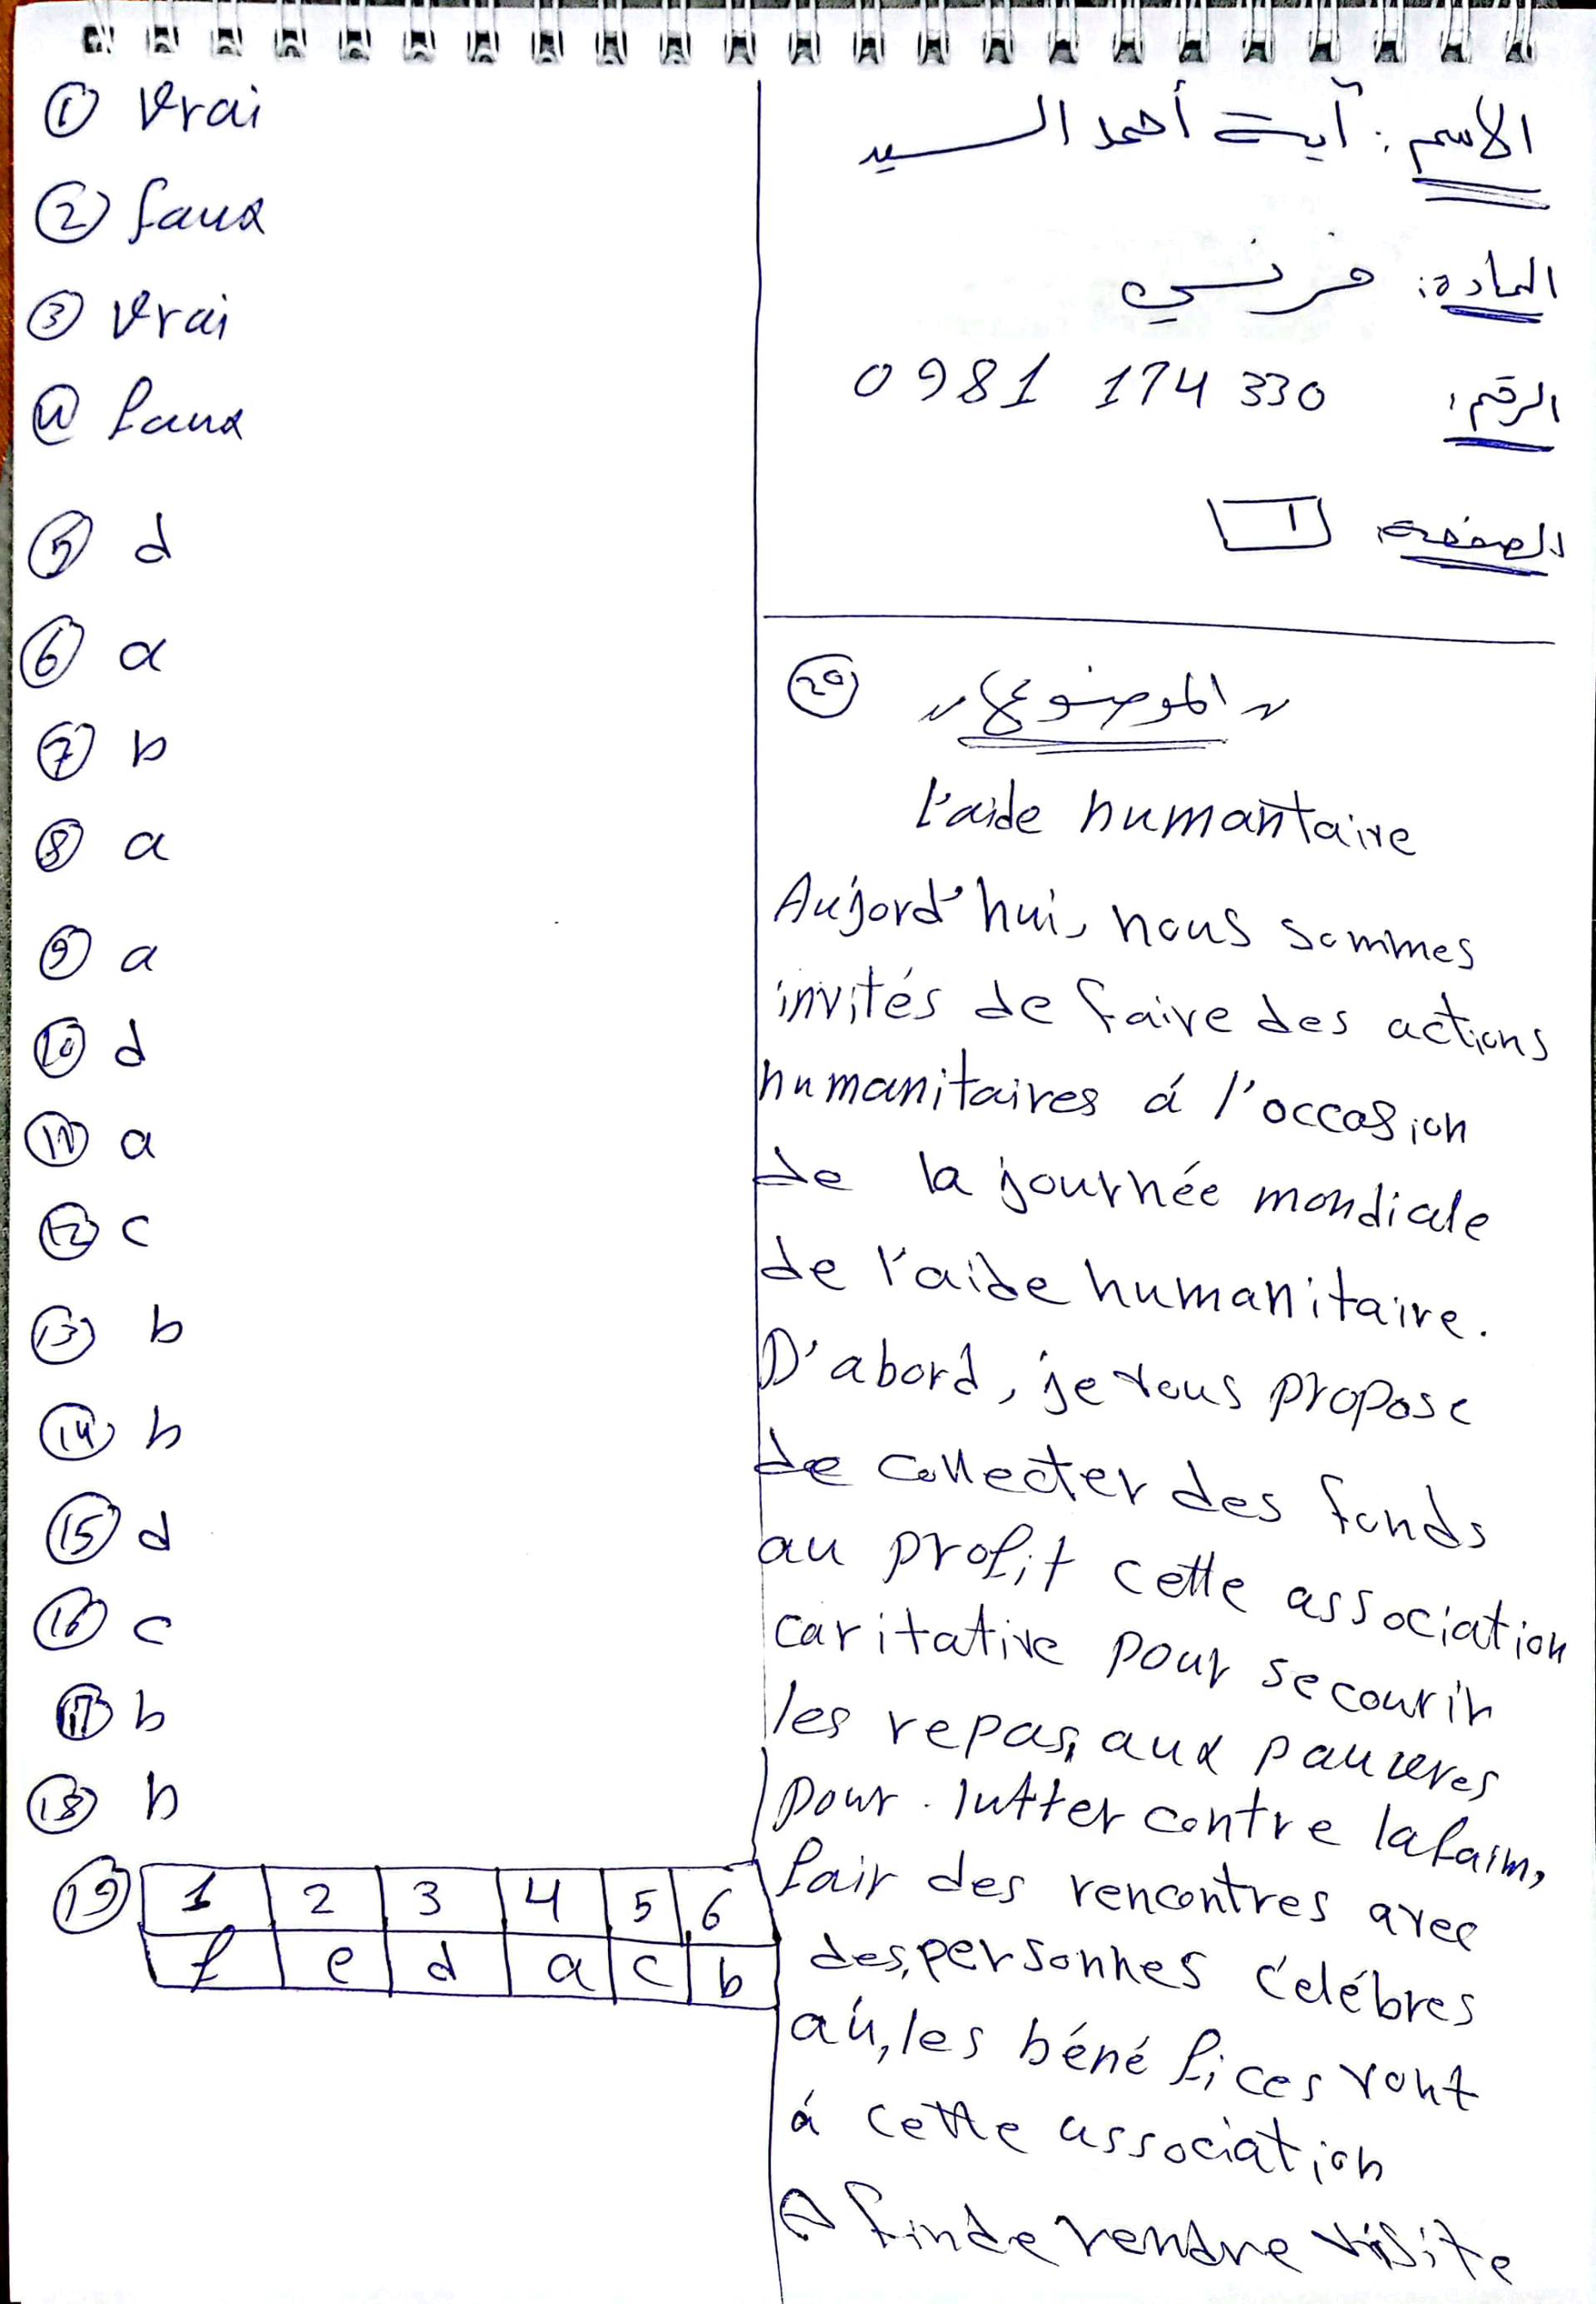 ① Vrai
② faux
③ Vrai
④ faux
⑤ d
⑥ a
⑦ b
⑧ a
⑨ a
⑩ d
⑪ a
⑫ c
⑬ b
⑭ b
⑮ d
⑯ c
⑰ b
⑱ b
⑲ 1 2 3 4 5 6
f e d a c b
الاسم: آية أحمد السيد
المادة: فرنسي
الرقم: 0981 174 330
الصفحة: 1
⑳ "الموضوع"
l'aide humantaire
Aujord'hui, nous sommes
invités de faire des actions
humanitaires á l'occasion
de la journée mondiale
de l'aide humanitaire.
D'abord, je vous propose
de collecter des fonds
au profit cette association
caritative pour secourir
les repas, aux pauvres
pour lutter contre la faim,
fair des rencontres avec
des personnes célébres
aú, les bénéfices vont
á cette association
Afin de rendre visite